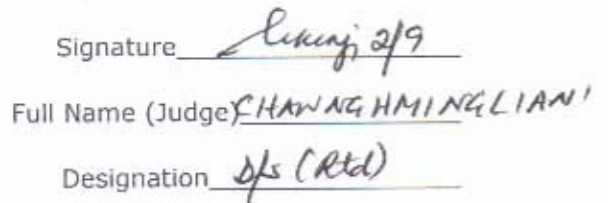 Signature 2/9
Full Name (Judge) CHAWNGHMINGLIANI
Designation D/s (Rtd)